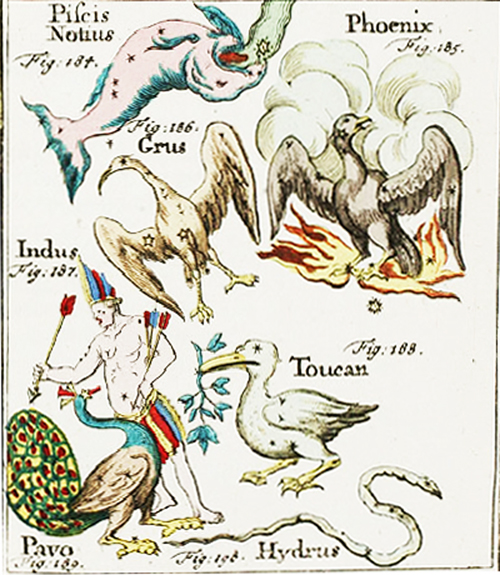 Piſcis
Notius
Fig: 184.
Phoenix
Fig: 185.
Fig: 186.
Grus
Indus
Fig: 187.
Fig: 188.
Toucan
Pavo
Fig: 189.
Fig: 198. Hydrus